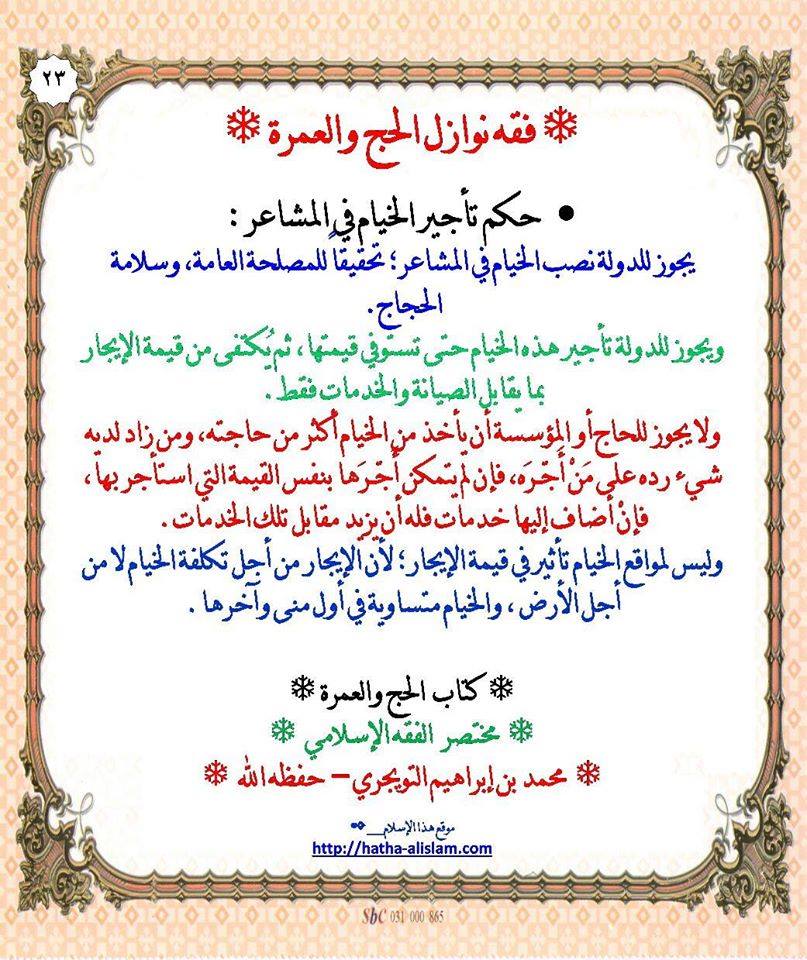 ٢٣
❄ فقه نوازل الحج والعمرة ❄
• حكم تأجير الخيام في المشاعر :
يجوز للدولة نصب الخيام في المشاعر؛ تحقيقاً للمصلحة العامة، وسلامة
الحجاج.
ويجوز للدولة تأجير هذه الخيام حتى تستوفي قيمتها، ثم يُكتفى من قيمة الإيجار
بما يقابل الصيانة والخدمات فقط.
ولا يجوز للحاج أو المؤسسة أن يأخذ من الخيام أكثر من حاجته، ومن زاد لديه
شيء رده على مَنْ أَجّرَه، فإن لم يتمكن أَجّرَها بنفس القيمة التي استأجر بها،
فإنْ أضاف إليها خدمات فله أن يزيد مقابل تلك الخدمات.
وليس لمواقع الخيام تأثير في قيمة الإيجار؛ لأن الإيجار من أجل تكلفة الخيام لا من
أجل الأرض، والخيام متساوية في أول منى وآخرها.
❄ كتاب الحج والعمرة ❄
❄ مختصر الفقه الإسلامي ❄
❄ محمد بن إبراهيم التويجري – حفظه الله ❄
موقع هذا الإسلام
http://hatha-alislam.com
SbC 031 000 865